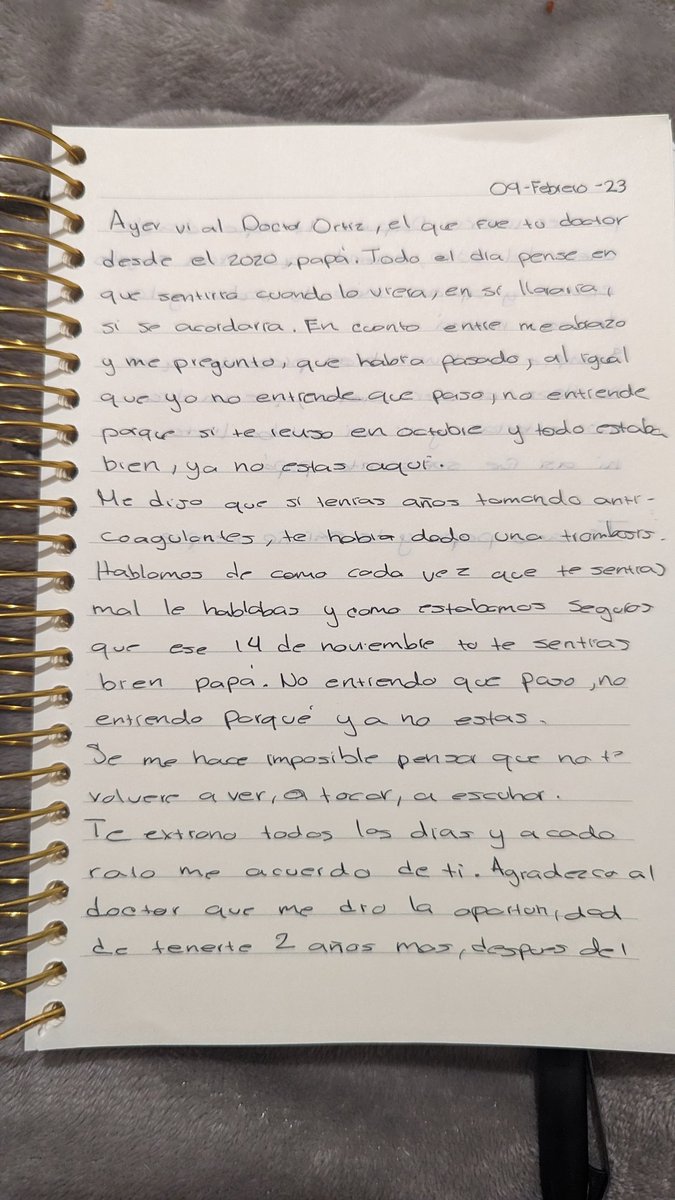 09-Febrero-23
Ayer vi al Doctor Ortiz, el que fue tu doctor
desde el 2020, papá. Todo el dia pense en
que sentiria cuando lo viera, en si lloraria,
si se acordaria. En cuanto entre me abrazo
y me pregunto, que habia pasado, al igual
que yo no entiende que paso, no entiende
porque si te reviso en octubre y todo estaba
bien, ya no estas aqui.
Me dijo que si tenias años tomando anti-
coagulantes, te habia dado una trombosis.
Hablamos de como cada vez que te sentias
mal le hablabas y como estabamos seguros
que ese 14 de noviembre tu te sentias
bien papá. No entiendo que paso, no
entiendo porqué ya no estas.
Se me hace imposible pensar que no te
volvere a ver, a tocar, a escuhar.
Te extraño todos los dias y a cada
rato me acuerdo de ti. Agradezco al
doctor que me dio la oportunidad
de tenerte 2 años mas, despues del